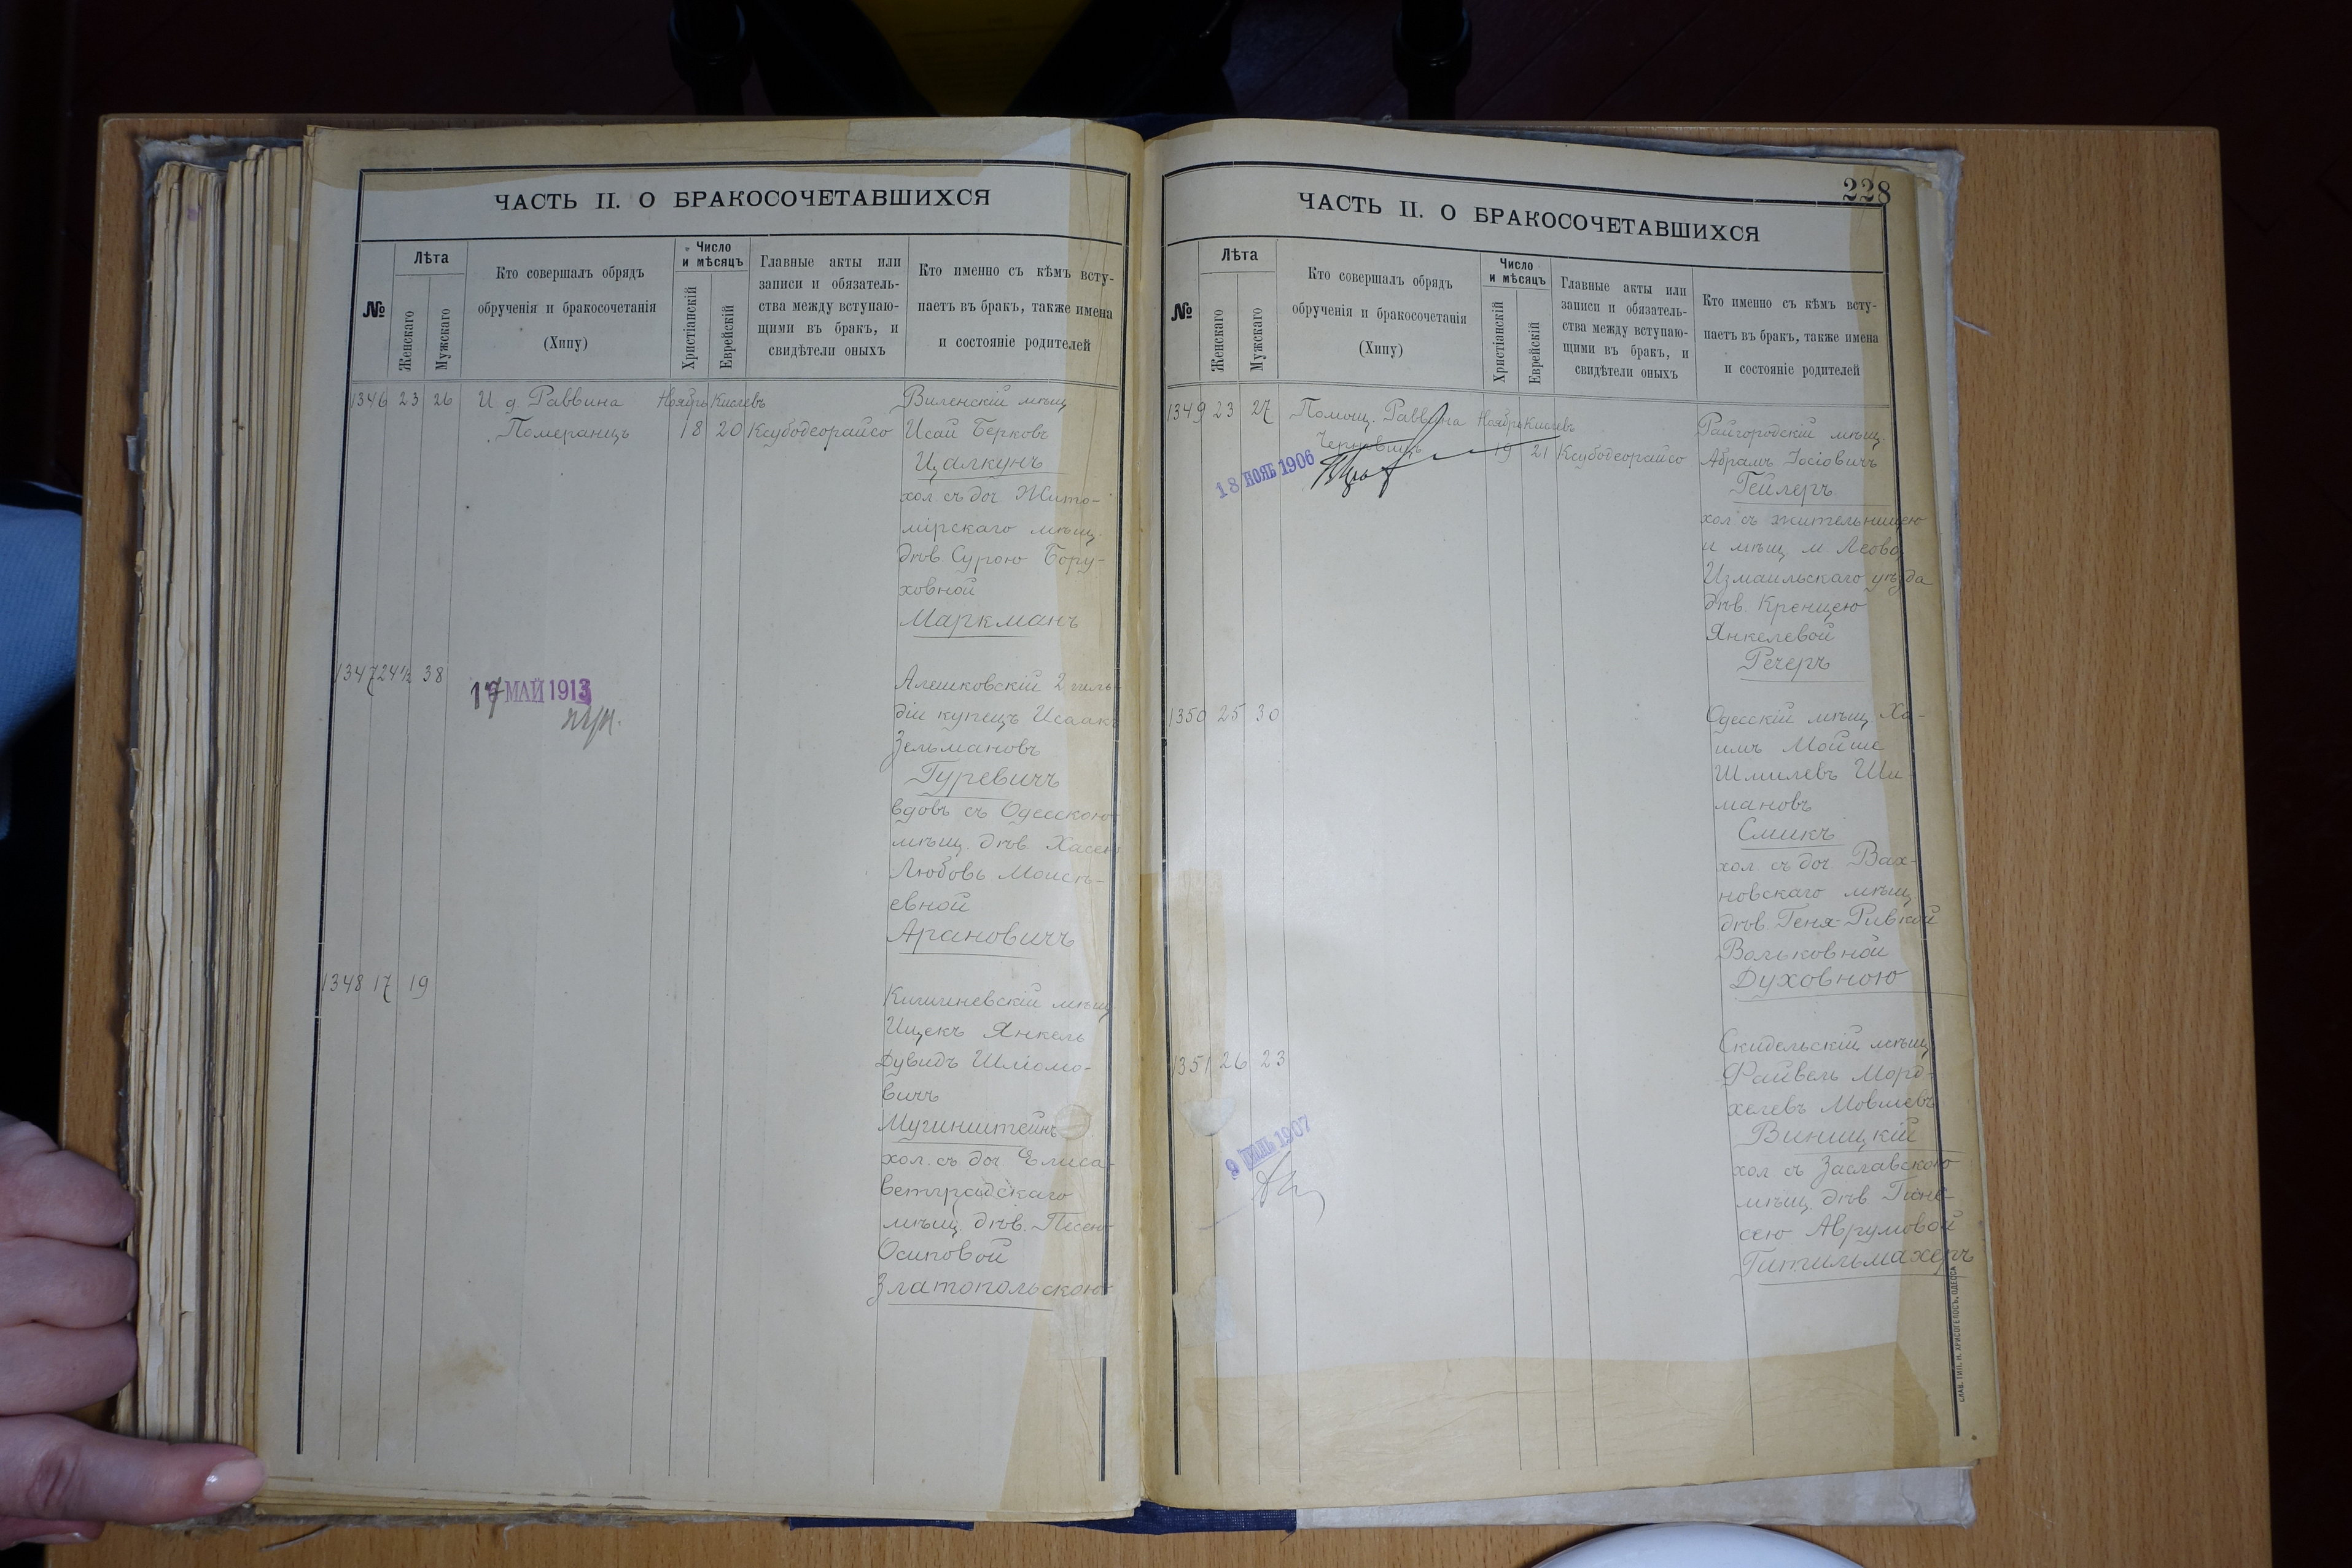 ЧАСТЬ II. О БРАКОСОЧЕТАВШИХСЯ
№
Лѣта
Женскаго
Мужскаго
Кто совершалъ обрядъ
обрученія и бракосочетанія
(Хипу)
Число
и мѣсяцъ
Христіанскій
Еврейскій
Главные акты или
записи и обязатель-
ства между вступаю-
щими въ бракъ, и
свидѣтели оныхъ
Кто именно съ кѣмъ всту-
паетъ въ бракъ, также имена
и состояніе родителей
1346 23 26 И д Раввина Ноябрь Кислевъ
Померанцъ 18 20 Ксубодеорайсо
Виленскій мѣщ
Исай Берковъ
Цалкунъ
хол. съ доч Жито-
мірскаго мѣщ.
дѣв. Сурою Бору-
ховной
Маркманъ
1347 24½ 38
17 МАЙ 1913
Алешковскій 2 гиль-
діи купецъ Исаакъ
Зельмановъ
Гуревичъ
вдовъ съ Одесскою
мѣщ. дѣв. Хасею
Любовь Моисѣ-
евной
Арановичъ
1348 17 19
Кишиневскій мѣщ
Ицекъ Янкель
Дувидъ Шліомо-
вичъ
Мугинштейнъ
хол. съ доч. Елиса-
ветградскаго
мѣщ. дѣв. Песею
Осиповой
Златопольскою
228
ЧАСТЬ II. О БРАКОСОЧЕТАВШИХСЯ
№
Лѣта
Женскаго
Мужскаго
Кто совершалъ обрядъ
обрученія и бракосочетанія
(Хипу)
Число
и мѣсяцъ
Христіанскій
Еврейскій
Главные акты или
записи и обязатель-
ства между вступаю-
щими въ бракъ, и
свидѣтели оныхъ
Кто именно съ кѣмъ всту-
паетъ въ бракъ, также имена
и состояніе родителей
1349 23 27 Помощ. Раввина Ноябрь Кислевъ
19 21 Ксубодеорайсо
18 НОЯБ 1906
Райгородскій мѣщ.
Абрамъ Іосіовичъ
Гейлеръ
хол съ жительницею
и мѣщ м Леово
Измаильскаго уѣзда
дѣв. Кренцею
Янкелевой
Речеръ
1350 25 30
Одесскій мѣщ Ха-
имъ Мойше
Шмилевъ Ши-
мановъ
Смикъ
хол. съ доч Вах-
новскаго мѣщ
дѣв Геня-Ривкой
Вольковной
Духовною
1351 26 23
9 1907
Скидельскій мѣщ
Файвель Морд-
хелевъ Мовшевъ
Виницкій
хол съ Заславскою
мѣщ. дѣв
сею Аврумовой
Гитильмахеръ
СЛАВ. ТИП. Н. ХРИСОГЕЛОСЪ, ОДЕССА